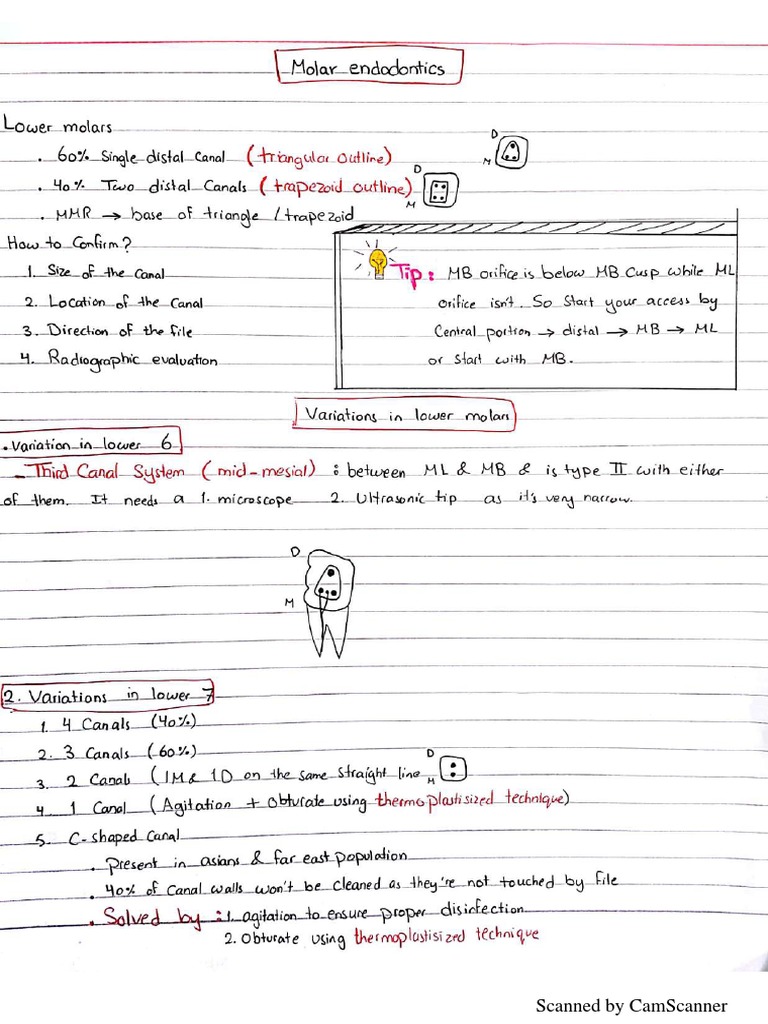 Molar endodontics
Lower molars
. 60% Single distal Canal (triangular outline)
D
M
. 40% Two distal Canals (trapezoid outline)
D
M
. MMR → base of triangle / trapezoid
How to Confirm?
1. Size of the Canal
2. Location of the Canal
3. Direction of the file
4. Radiographic evaluation
Tip: MB orifice is below MB Cusp while ML
orifice isn't. So Start your access by
Central portion → distal → MB → ML
or start with MB.
Variations in lower molars
. Variation in lower 6
- Third Canal System (mid-mesial) : between ML & MB & is type II with either
of them. It needs a 1. microscope 2. Ultrasonic tip as it's very narrow.
D
M
2. Variations in lower 7
1. 4 Canals (40%)
2. 3 Canals (60%)
3. 2 Canals (1M & 1D on the same straight line
D
M
4. 1 Canal (Agitation + obturate using thermoplastisized technique)
5. C-shaped canal
. Present in asians & far east population
. 40% of Canal walls won't be cleaned as they're not touched by file
. Solved by : 1. agitation to ensure proper disinfection
2. Obturate using thermoplastisized technique
Scanned by CamScanner